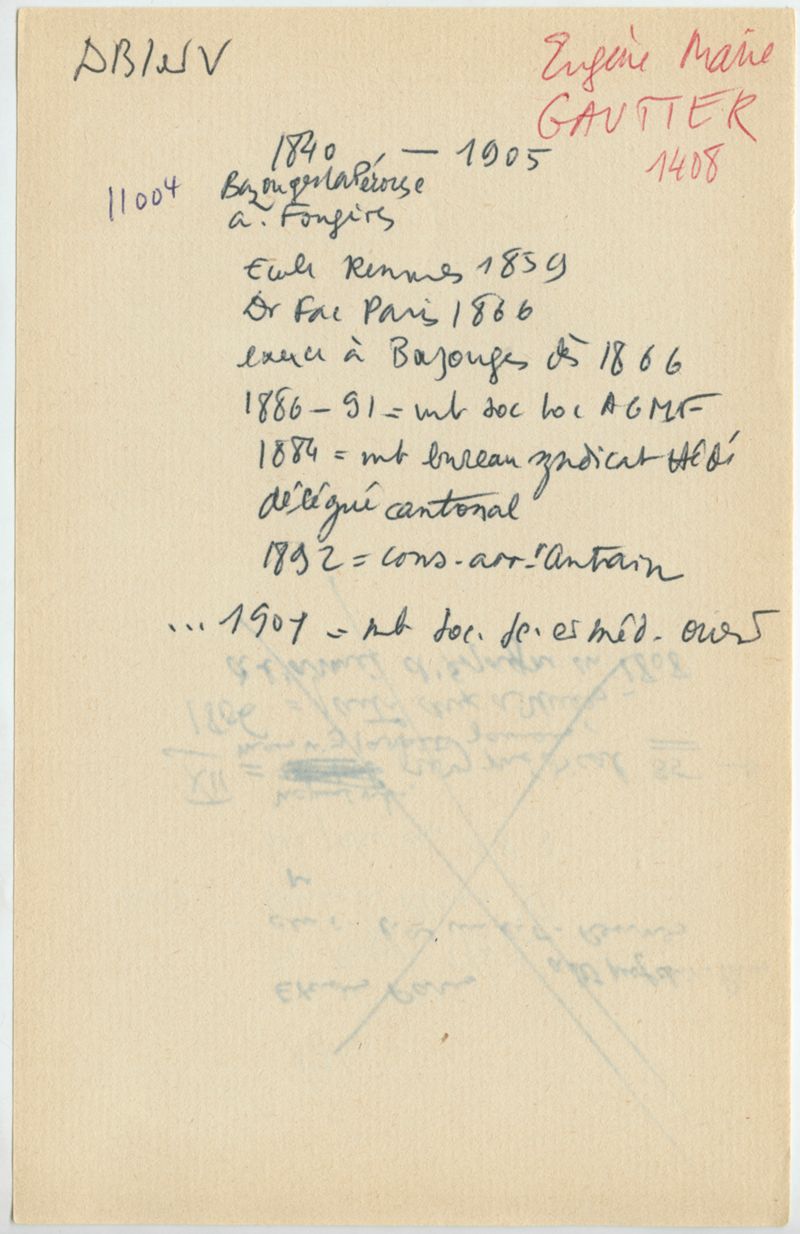 DBI et V
Eugène Marie
GAUTIER
1408
1840 — 1905
11004
Bazouges la Pérouse
a. Fougères
Ecole Rennes 1859
Dr Fac Paris 1866
exerce à Bazouges dès 1866
1886 - 91 = mb soc loc AGMF
1884 = mb bureau syndicat
délégué cantonal
1892 = cons. arr. Antrain
... 1901 = mb soc. sc. et méd. ouest